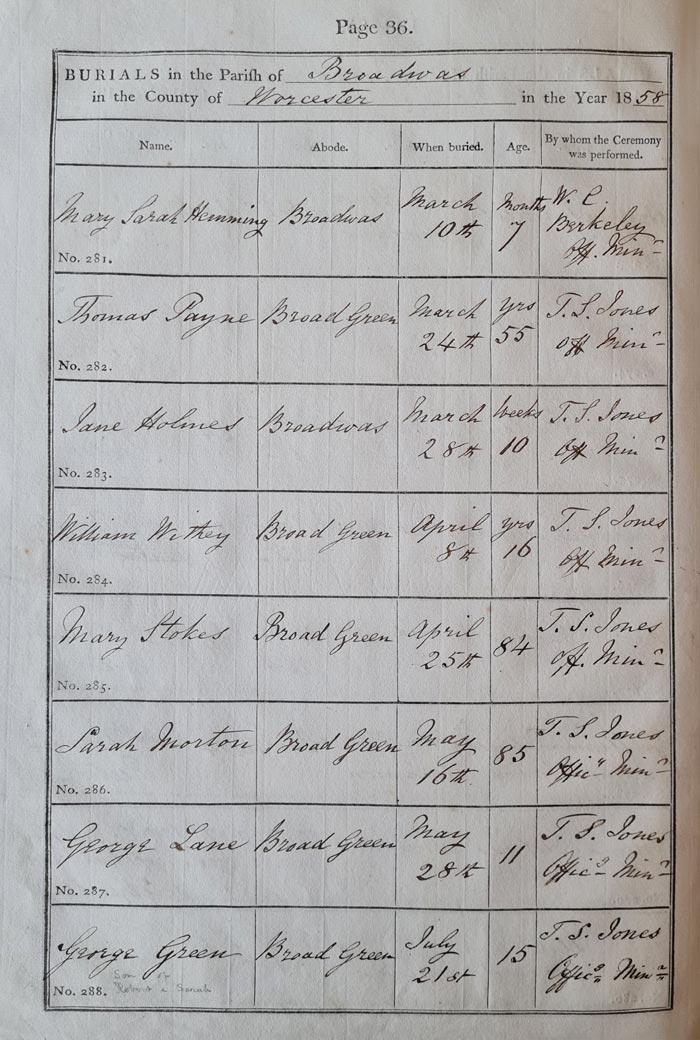 Page 36.
BURIALS in the Parish of Broadwas
in the County of Worcester in the Year 1858
Name. Abode. When buried. Age. By whom the Ceremony was performed.
Mary Sarah Hemming Broadwas March 10th Months 7 W. C. Berkeley Off. Minr
No. 281.
Thomas Payne Broad Green March 24th yrs 55 T. S. Jones Off Minr
No. 282.
Jane Holmes Broadwas March 28th Weeks 10 T. S. Jones Off Minr
No. 283.
William Withey Broad Green April 8th yrs 16 T. S. Jones Off Minr
No. 284.
Mary Stokes Broad Green April 25th 84 T. S. Jones Off. Minr
No. 285.
Sarah Morton Broad Green May 16th 85 T. S. Jones Officg Minr
No. 286.
George Lane Broad Green May 28th 11 T. S. Jones Officg Minr
No. 287.
George Green Broad Green July 21st 15 T. S. Jones Officg Minr
Son of
No. 288. Robert & Sarah